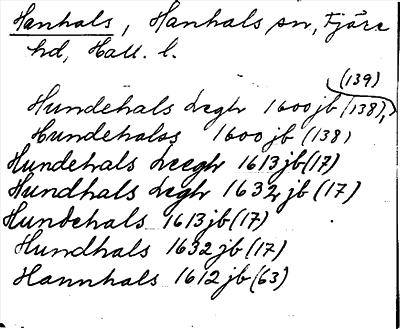 Hanhals, Hanhals sn, Fjäre
hd, Hall. l.
(139)
Hundehals Lægh 1600 jb (138),
Hundehalss 1600 jb (138)
Hundehals Leegh 1613 jb (17)
Hundhals Legh 1632 jb (17)
Hundehals 1613 jb (17)
Hundhals 1632 jb (17)
Hannhals 1612 jb (63)